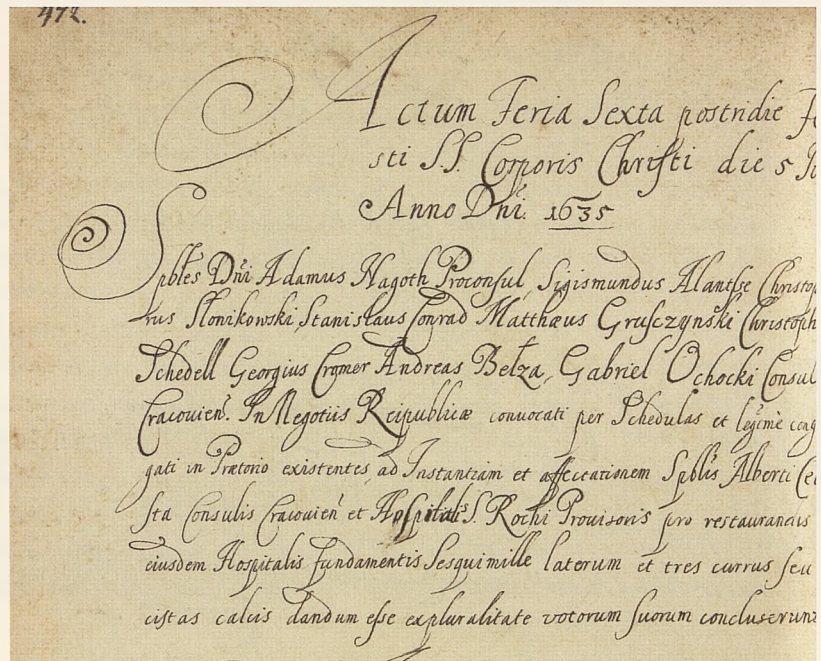 472.
Actum Feria Sexta postridie
sti S.S. Corporis Christi die 5
Anno Dni. 1635
Spbles Dni Adamus Nagoth Proconsul, Sigismundus Alantse Christop
rus Slonikowski, Stanislaus Conrad Matthæus Grusczynski Christoph
Schedell Georgius Cromer Andreas Belza, Gabriel Ochocki Consul
Cracouien. In Negotiis Reipublicæ convocati per Schedulas et legimè cong
gati in Prætorio existentes, ad Instantiam et affectationem Spblis Alberti
sta Consulis Cracouien et Hospitalis S. Rochi Prouisoris pro restaurandis
eiusdem Hospitalis fundamentis Sesquimille laterum et tres currus seu
cistas calcis dandum esse expluralitate votorum suorum concluserunt